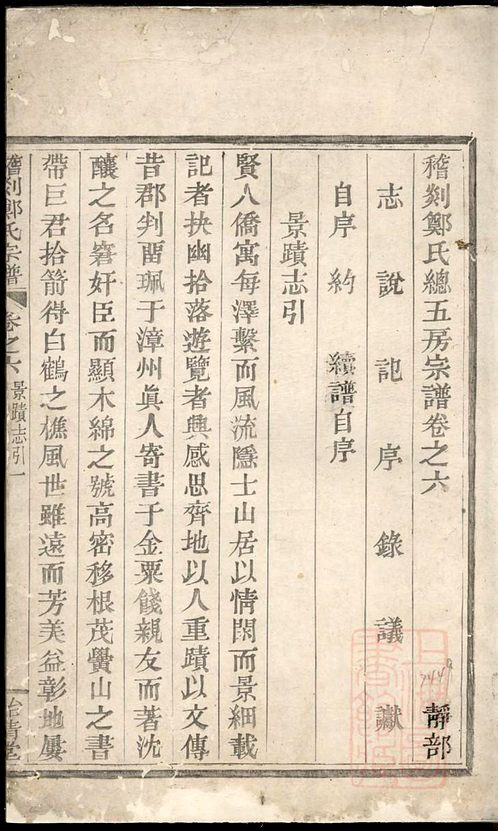 稽剡鄭氏總五房宗譜卷之六　靜部
志說記序錄議獻
自序　約　續譜自序
景蹟志引
賢人僑寓每澤繫而風流隱士山居以情閑而景細載
記者抉幽拾落遊覽者興感思齊地以人重蹟以文傳
昔郡判畱珮于漳州眞人寄書于金粟餞親友而著沈
釀之名窘奸臣而顯木綿之號高密移根茂黌山之書
帶巨君拾箭得白鶴之樵風世雖遠而芳美益彰地屢
稽剡鄭氏宗譜　卷之六　景蹟志引　一
7449